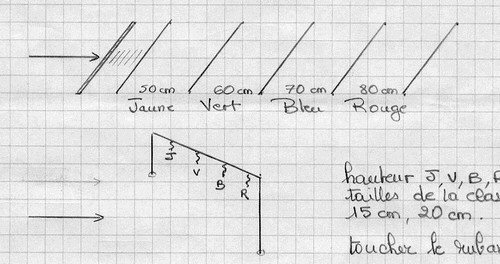 50 cm 60 cm 70 cm 80 cm
Jaune Vert Bleu Rouge
J
V
B
R
hauteur J, V, B, R
tailles de la clas
15 cm, 20 cm.
toucher le ruba